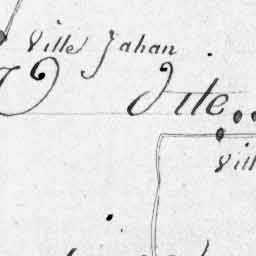 Ville Jahan
Dite
Vill